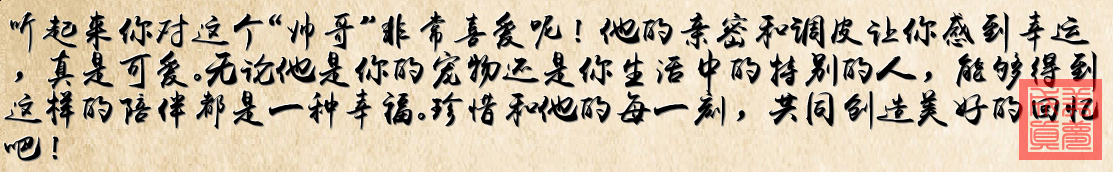 听起来你对这个“帅哥”非常喜爱呢！他的亲密和调皮让你感到幸运
，真是可爱。无论他是你的宠物还是你生活中的特别的人，能够得到
这样的陪伴都是一种幸福。珍惜和他的每一刻，共同创造美好的回忆
吧！